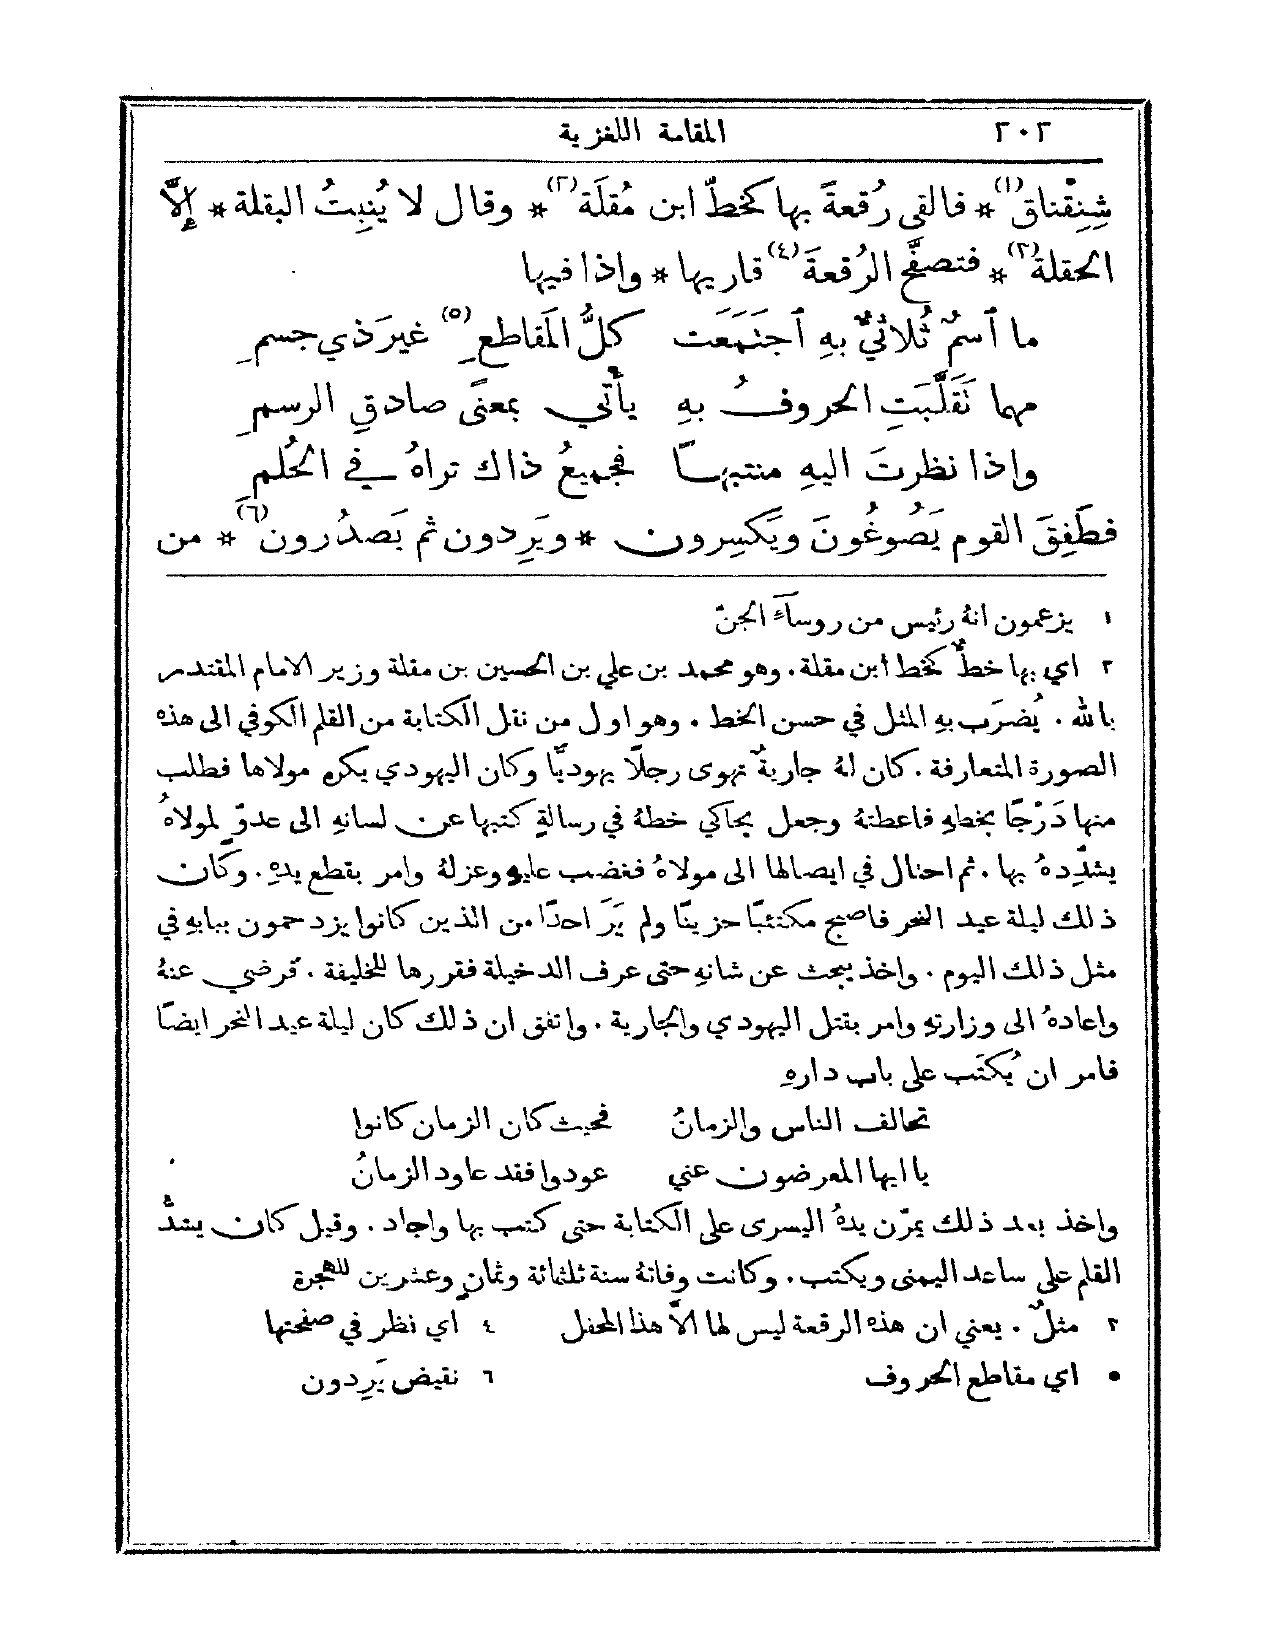 ٢٠٢ المقامة اللغزية
شِنِقْناق(١) * فالقى رُقعةً بها كخطّ ابن مُقلَة(٢) * وقال لا يُنبِتُ البقلة * إلَّا
الحقلة(٣) * فتصفَّح الرُقعةَ(٤) قاريها * واذا فيها
ما ٱسمٌ ثُلاثيٌّ بهِ ٱجتَمَعت كلُّ المَقاطعِ(٥) غيرَ ذي جسمِ
مهما تَقَلَّبَتِ الحروفُ بهِ يأتي بمعنًى صادقِ الرسمِ
واذا نظرتَ اليهِ منتبهًا فجميعُ ذاك تراهُ في الحُلمِ
فطَفِقَ القوم يَصُوغُونَ ويَكسِرون * ويَرِدون ثم يَصدُرون(٦) * من
١ يزعمون انهُ رئيس من روساءَ الجنّ
٢ اي بها خطٌّ كخط ابن مقلة. وهو محمد بن علي بن الحسين بن مقلة وزير الامام المقتدر
بالله. يُضرَب بهِ المثل في حسن الخط. وهو اول من نقل الكتابة من القلم الكوفي الى هذه
الصورة المتعارفة. كان لهُ جاريةٌ تهوى رجلًا يهوديًّا وكان اليهودي يكره مولاها فطلب
منها دَرْجًا بخطهِ فاعطتهُ وجعل يحاكي خطهُ في رسالةٍ كتبها عن لسانهِ الى عدوٍّ لمولاهُ
يشدّدهُ بها. ثم احتال في ايصالها الى مولاهُ فغضب عليهِ وعزلهُ وامر بقطع يدهِ. وكان
ذلك ليلة عيد النحر فاصبح مكتئبًا حزينًا ولم يَرَ احدًا من الذين كانوا يزدحمون ببابهِ في
مثل ذلك اليوم. واخذ يبحث عن شانهِ حتى عرف الدخيلة فقررها للخليفة. فرضي عنهُ
واعادهُ الى وزارتهِ وامر بقتل اليهودي والجارية. واتفق ان ذلك كان ليلة عيد النحر ايضًا
فامر ان يُكتَب على باب دارهِ
تحالف الناس والزمانُ فحيث كان الزمان كانوا
يا ايها المعرضون عني عودوا فقد عاود الزمانُ
واخذ بعد ذلك يمرّن يدهُ اليسرى على الكتابة حتى كتب بها واجاد. وقيل كان يشدُّ
القلم على ساعد اليمنى ويكتب. وكانت وفاتهُ سنة ثلثمائة وثمانٍ وعشرين للهجرة
٣ مثلٌ. يعني ان هذه الرقعة ليس لها الَّا هذا المحفل ٤ اي نظر في صفحتها
٥ اي مقاطع الحروف ٦ نقيض يَرِدون